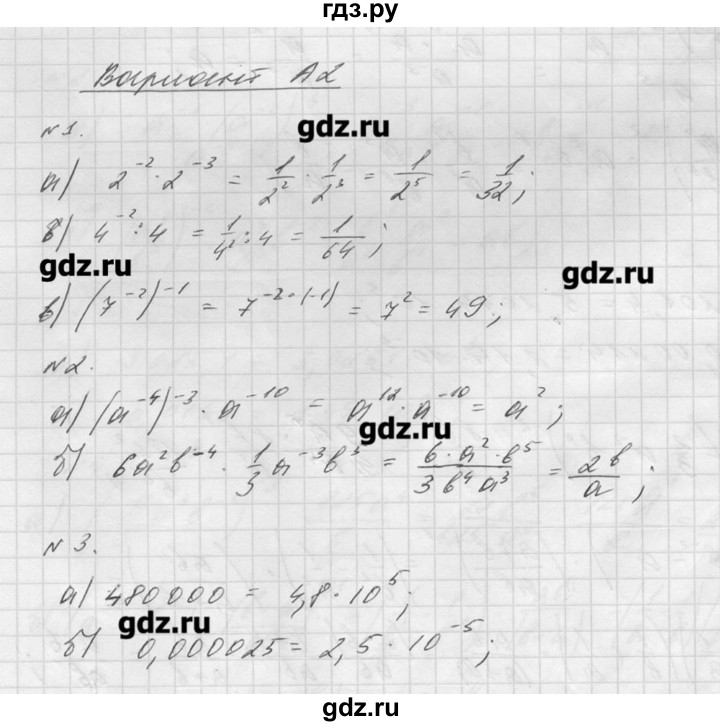 гдз.ру
Вариант А2
№1.
gdz.ru
а) 2⁻² · 2⁻³ = 1/2² · 1/2³ = 1/2⁵ = 1/32;
б) 4⁻² : 4 = 1/4² : 4 = 1/64;
gdz.ru
gdz.ru
в) (7⁻²)⁻¹ = 7⁻²·⁽⁻¹⁾ = 7² = 49;
№2.
а) (a⁻⁴)⁻³ · a⁻¹⁰ = a¹² · a⁻¹⁰ = a²;
gdz.ru
б) 6a²b⁻⁴ · 1/3 a⁻³b⁵ = (6 · a² · b⁵)/(3b⁴a³) = 2b/a;
№3.
а) 480000 = 4,8 · 10⁵;
gdz.ru
б) 0,000025 = 2,5 · 10⁻⁵;
gdz.ru